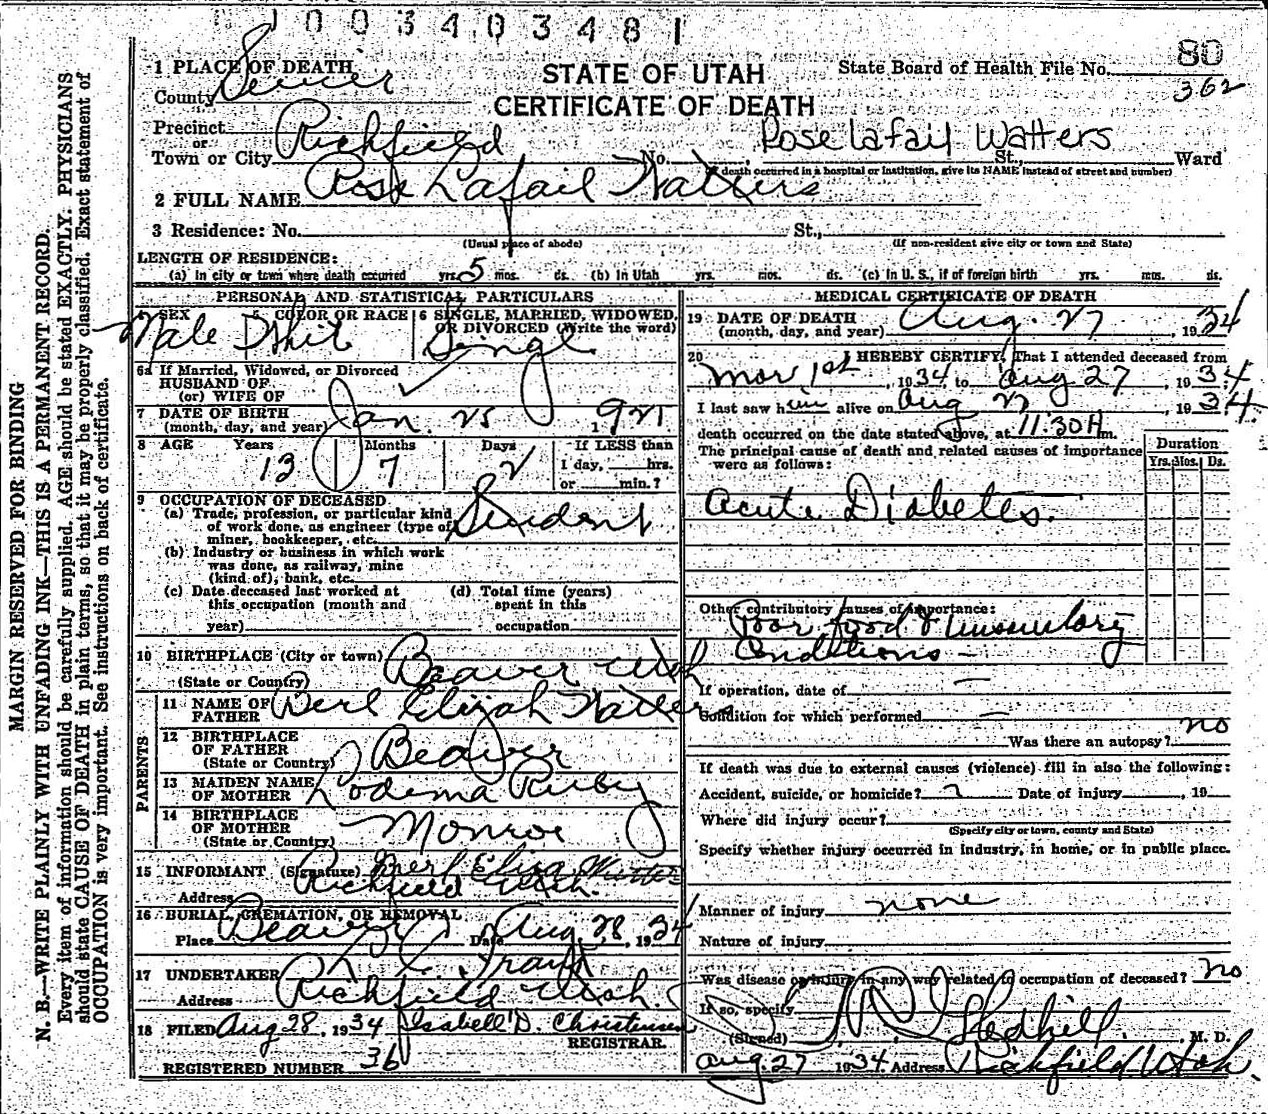 1003403481
80
362
1 PLACE OF DEATH
County Sevier
STATE OF UTAH
CERTIFICATE OF DEATH
State Board of Health File No.
Precinct
or
Town or City Richfield No. St., Ward
Rose Lafail Watters
(If death occurred in a hospital or institution, give its NAME instead of street and number)
2 FULL NAME Rose Lafail Watters
3 Residence: No. St.,
(Usual place of abode) (If non-resident give city or town and State)
LENGTH OF RESIDENCE:
(a) In city or town where death occurred yrs. 5 mos. ds. (b) In Utah yrs. mos. ds. (c) In U. S., if of foreign birth yrs. mos. ds.
PERSONAL AND STATISTICAL PARTICULARS
SEX Male
5 COLOR OR RACE Whit
6 SINGLE, MARRIED, WIDOWED, OR DIVORCED (Write the word) Singl
6a If Married, Widowed, or Divorced
HUSBAND OF
(or) WIFE OF
7 DATE OF BIRTH
(month, day, and year) Jan. 25 1921
8 AGE Years Months Days If LESS than
13 7 2 1 day, hrs.
or min.?
9 OCCUPATION OF DECEASED
(a) Trade, profession, or particular kind
of work done, as engineer (type of
miner, bookkeeper, etc. Student
(b) Industry or business in which work
was done, as railway, mine
(kind of), bank, etc.
(c) Date deceased last worked at
this occupation (month and
year)
(d) Total time (years)
spent in this
occupation
10 BIRTHPLACE (City or town) Beaver Utah
(State or Country)
PARENTS
11 NAME OF
FATHER Berl Elizah Watters
12 BIRTHPLACE
OF FATHER
(State or Country) Beaver
13 MAIDEN NAME
OF MOTHER Lodema Kirby
14 BIRTHPLACE
OF MOTHER
(State or Country) Monroe
15 INFORMANT (Signature) Merl Eliza
Address Richfield Utah.
16 BURIAL, CREMATION, OR REMOVAL
Place Beaver Date Aug 28, 1934
17 UNDERTAKER
Address Richfield Utah.
18 FILED Aug 28, 1934 Isabell D. Christensen
REGISTRAR.
REGISTERED NUMBER 36
MEDICAL CERTIFICATE OF DEATH
19 DATE OF DEATH
(month, day, and year) Aug. 27 1934
20 I HEREBY CERTIFY, That I attended deceased from
Mar 1st, 1934 to Aug 27, 1934
I last saw him alive on Aug 27, 1934.
death occurred on the date stated above, at 11:30 A m.
The principal cause of death and related causes of importance
were as follows:
Duration
Yrs. Mos. Ds.
Acute Diabetes.
Other contributory causes of importance:
Poor food &
Conditions —
If operation, date of —
Condition for which performed —
Was there an autopsy? no
If death was due to external causes (violence) fill in also the following:
Accident, suicide, or homicide? Date of injury , 19
Where did injury occur?
(Specify city or town, county and State)
Specify whether injury occurred in industry, in home, or in public place.
Manner of injury none
Nature of injury
Was disease or injury in any way related to occupation of deceased? no
If so, specify
(Signed) Gledhill. M. D.
Aug. 27 1934 Address Richfield Utah.
MARGIN RESERVED FOR BINDING
N. B.—WRITE PLAINLY WITH UNFADING INK—THIS IS A PERMANENT RECORD.
Every item of information should be carefully supplied. AGE should be stated EXACTLY. PHYSICIANS
should state CAUSE OF DEATH in plain terms, so that it may be properly classified. Exact statement of
OCCUPATION is very important. See instructions on back of certificate.